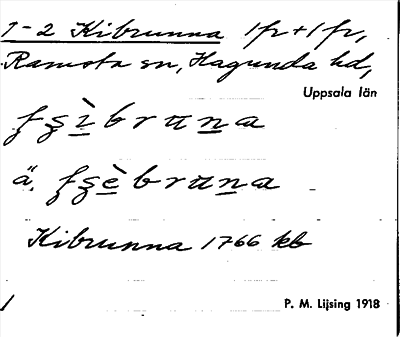 1-2 Kibrunna 1fr+1fr,
Ramsta sn, Hagunda hd,
Uppsala län
ʃʂı̀bruna
ä. ʃʂèbruna
Kibrunna 1766 kb
P. M. Lijsing 1918